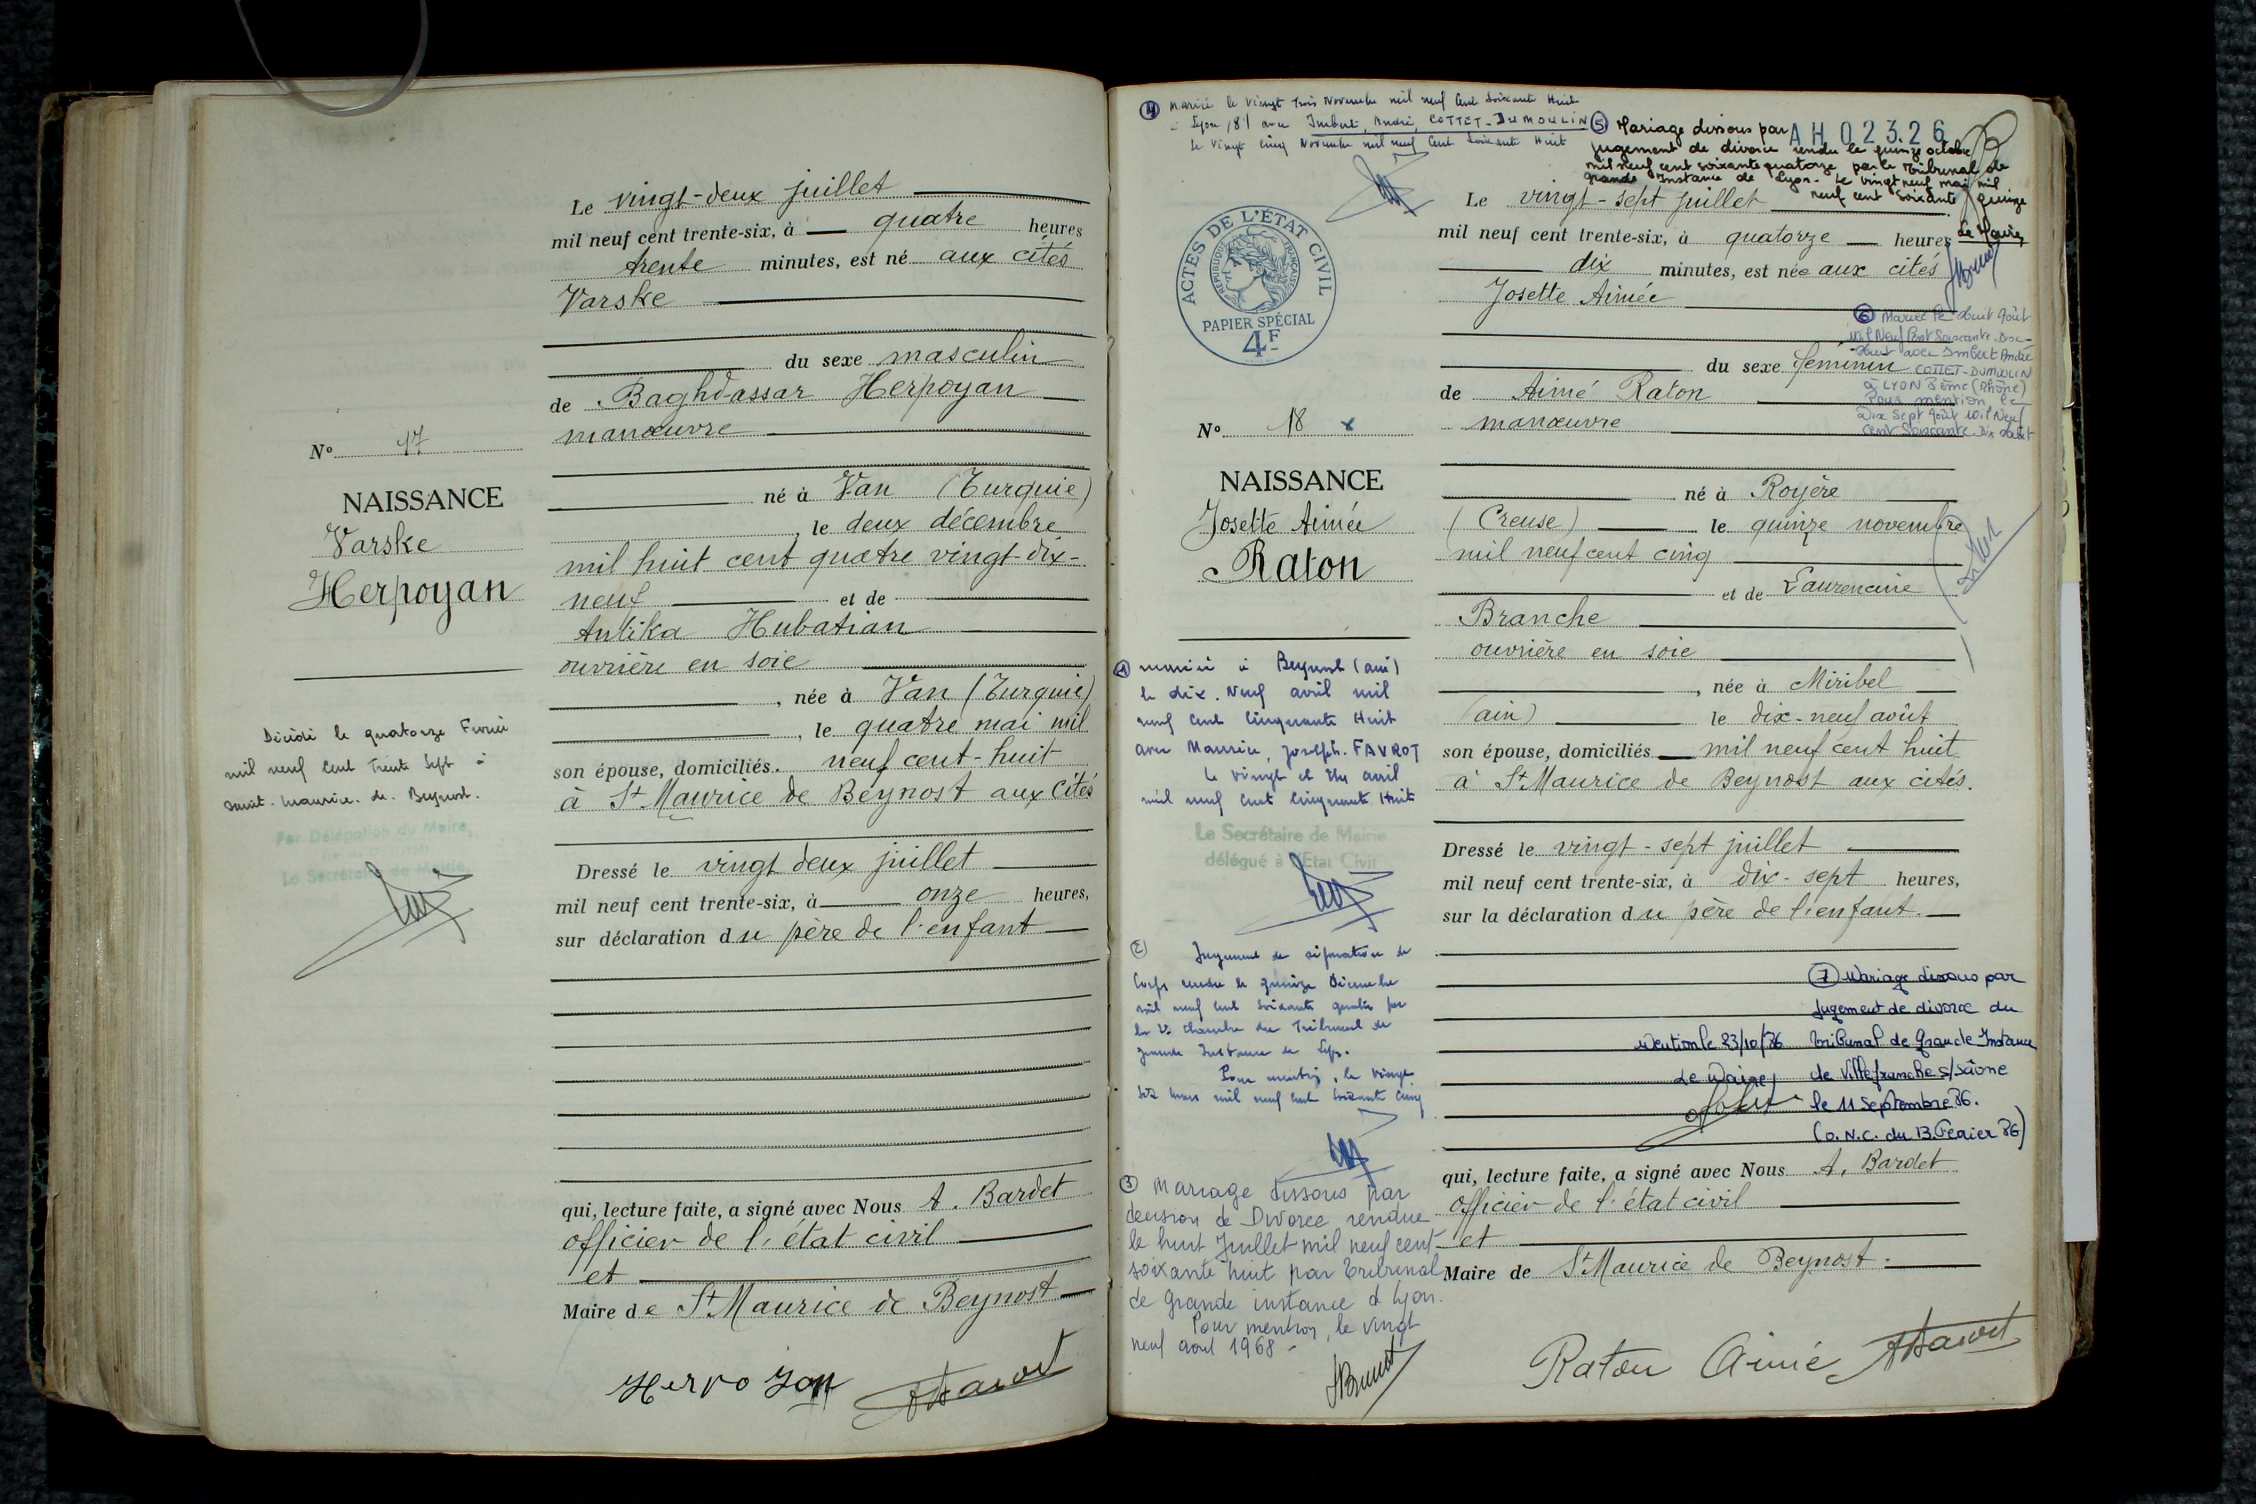 Le vingt-deux juillet
mil neuf cent trente-six, à quatre heures
trente minutes, est né aux cités
Varske
du sexe masculin
de Baghdassar Herpoyan
manœuvre
né à Van (Turquie)
, le deux décembre
mil huit cent quatre vingt-dix-
neuf et de
Antika Hubatian
ouvrière en soie
, née à Van (Turquie)
, le quatre mai mil
son épouse, domiciliés. neuf cent-huit
à St Maurice de Beynost aux Cités
Dressé le vingt deux juillet
mil neuf cent trente-six, à onze heures,
sur déclaration du père de l'enfant
qui, lecture faite, a signé avec Nous A. Bardet
officier de l'état civil
et
Maire de St Maurice de Beynost
Herpoyan
No 17
NAISSANCE
Varske
Herpoyan
Décédé le quatorze Février
mil neuf cent Trente Sept à
Saint-Maurice-de-Beynost.
Par Délégation du Maire,
Le Secrétaire de Mairie
④ Mariée le vingt Trois Novembre mil neuf Cent Soixante Huit
à Lyon (8e) avec Imbert, André, COTTET-DUMOULIN
le vingt cinq Novembre mil neuf Cent Soixante Huit
⑤ Mariage dissous par
AH 023.26
jugement de divorce rendu le quinze octobre
mil neuf cent soixante quatorze par le Tribunal de
grande Instance de Lyon. Le vingt neuf mai mil
neuf cent soixante quinze
Le Maire,
ACTES DE L'ÉTAT CIVIL
RÉPUBLIQUE FRANÇAISE
PAPIER SPÉCIAL
4F
Le vingt-sept juillet
mil neuf cent trente-six, à quatorze heures
dix minutes, est née aux cités
Josette Aimée
⑥ Mariée le huit Août
mil Neuf Cent Soixante Dix-
Huit avec Imbert André
COTTET-DUMOULIN
à LYON 8ème (Rhône)
Pour mention le
Dix Sept Août Mil Neuf
Cent Soixante Dix Huit
du sexe féminin
de Aimé Raton
manœuvre
né à Royère
(Creuse) le quinze novembre
mil neuf cent cinq
et de Laurencine
Branche
ouvrière en soie
, née à Miribel
(ain) le dix-neuf août
son épouse, domiciliés mil neuf cent huit
à St Maurice de Beynost aux cités.
Dressé le vingt-sept juillet
mil neuf cent trente-six, à dix-sept heures,
sur la déclaration du père de l'enfant.
⑦ Mariage dissous par
jugement de divorce du
Tribunal de Grande Instance
de Villefranche s/Saône
le 11 Septembre 86.
(O.N.C. du 13 Février 86)
Mention le 23/10/86
Le Maire,
qui, lecture faite, a signé avec Nous A. Bardet
officier de l'état civil
et
Maire de St Maurice de Beynost.
Raton Aimé
No 18
NAISSANCE
Josette Aimée
Raton
① mariée à Beynost (ain)
le dix. Neuf avril mil
neuf Cent Cinquante Huit
avec Maurice, Joseph. FAVROT
le vingt et Un avril
mil neuf Cent Cinquante Huit
Le Secrétaire de Mairie
délégué à l'Etat Civil
② Jugement de séparation de
Corps rendu le quinze Décembre
mil neuf Cent Soixante quatre par
la 2e Chambre du Tribunal de
grande Instance de Lyon.
Pour mention, le vingt
six mars mil neuf Cent Soixante Cinq
③ Mariage dissous par
decision de Divorce rendue
le huit Juillet mil neuf cent
soixante huit par Tribunal
de grande instance d Lyon.
Pour mention, le vingt
neuf aout 1968